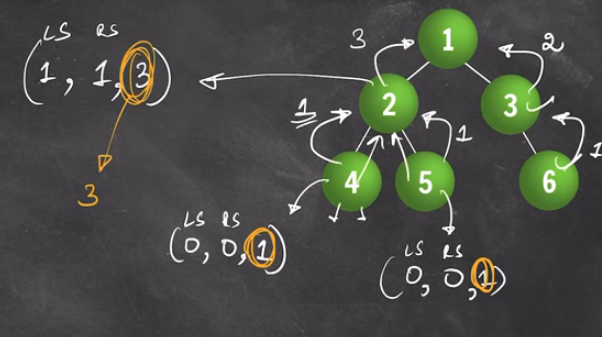 LS RS
(1, 1, 3)
3
3
1
2
2
3
1
4
5
1
6
1
LS RS
(0, 0, 1)
LS RS
(0, 0, 1)